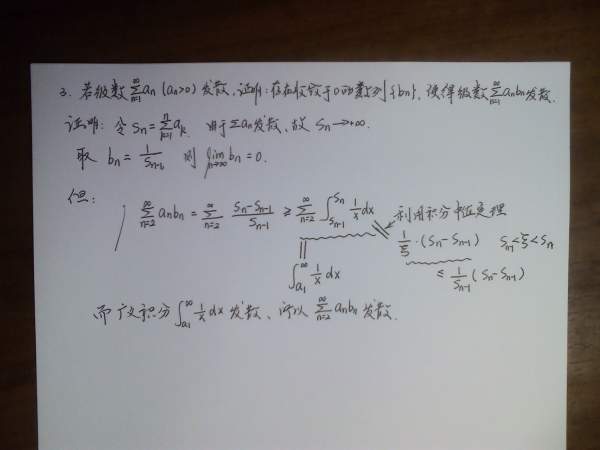 3. 若级数 ∑_{n=1}^{∞} aₙ (aₙ>0) 发散，证明：存在收敛于0的数列{bₙ}，使得级数 ∑_{n=1}^{∞} aₙbₙ 发散.
证明：令 Sₙ = ∑_{k=1}^{n} aₖ. 由于 ∑aₙ 发散，故 Sₙ → +∞.
取 bₙ = 1/Sₙ₋₁ 则 lim_{n→∞} bₙ = 0.
但：
∑_{n=2}^{∞} aₙbₙ = ∑_{n=2}^{∞} (Sₙ - Sₙ₋₁)/Sₙ₋₁ ≥ ∑_{n=2}^{∞} ∫_{Sₙ₋₁}^{Sₙ} 1/x dx 利用积分中值定理
|| 1/ξ · (Sₙ - Sₙ₋₁) Sₙ₋₁<ξ<Sₙ
∫_{a₁}^{∞} 1/x dx ≤ 1/Sₙ₋₁ (Sₙ - Sₙ₋₁)
而广义积分 ∫_{a₁}^{∞} 1/x dx 发散、所以 ∑_{n=2}^{∞} aₙbₙ 发散.